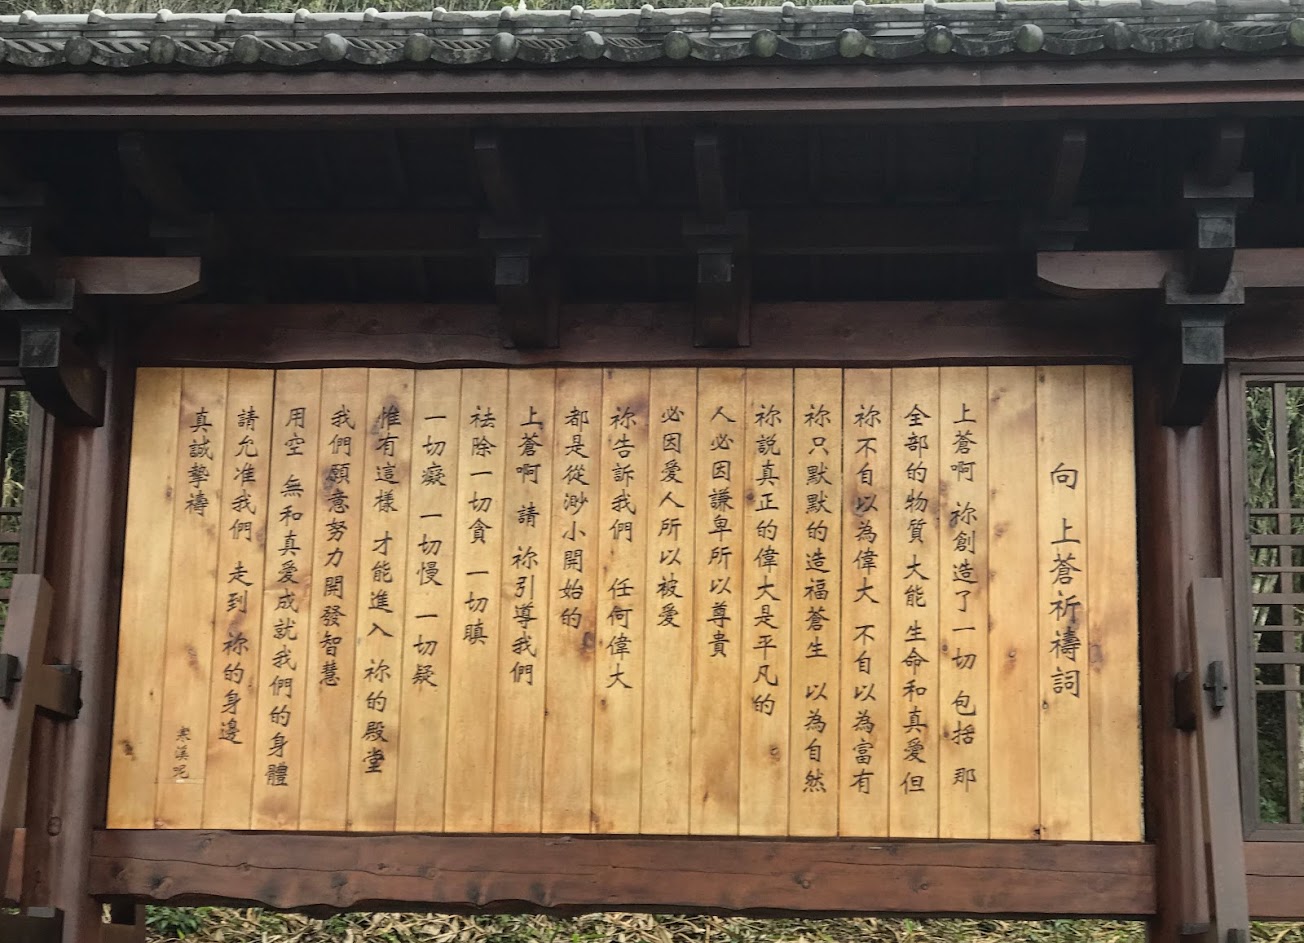 向 上蒼祈禱詞
上蒼啊 祢創造了一切 包括 那
全部的物質 大能 生命和真愛 但
祢不自以為偉大 不自以為富有
祢只默默的造福蒼生 以為自然
祢說真正的偉大是平凡的
人必因謙卑所以尊貴
必因愛人所以被愛
祢告訴我們 任何偉大
都是從渺小開始的
上蒼啊 請 祢引導我們
祛除一切貪 一切瞋
一切癡 一切慢 一切疑
惟有這樣 才能進入 祢的殿堂
我們願意努力開發智慧
用空 無和真愛成就我們的身體
請允准我們 走到 祢的身邊
真誠摯禱
寒溪呢